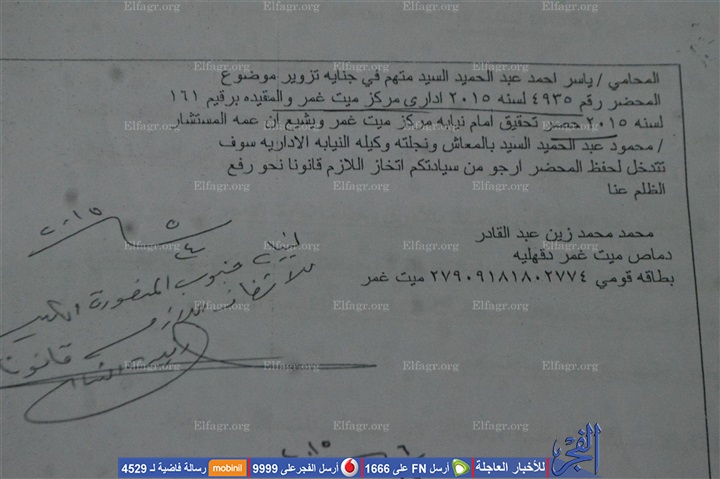 المحامي / ياسر احمد عبد الحميد السيد متهم في جنايه تزوير موضوع
المحضر رقم ٤٩٣٥ لسنه ٢٠١٥ اداري مركز ميت غمر والمقيده برقيم ١٦١
لسنه ٢٠١٥ حصر تحقيق امام نيابه مركز ميت غمر ويشيع ان عمه المستشار
/ محمود عبد الحميد السيد بالمعاش ونجلته وكيله النيابه الاداريه سوف
تتدخل لحفظ المحضر ارجو من سيادتكم اتخاز اللازم قانونا نحو رفع
الظلم عنا
محمد محمد زين عبد القادر
دماص ميت غمر دقهليه
بطاقه قومي ٢٧٩٠٩١٨١٨٠٢٧٧٤ ميت غمر
٢٠١٥
جنوب المنصورة
قانونا
٢٠١٥
الفجر للأخبار العاجلة أرسل FN على 1666 أرسل الفجر على 9999 mobinil رسالة فاضية لـ 4529
Elfagr.org